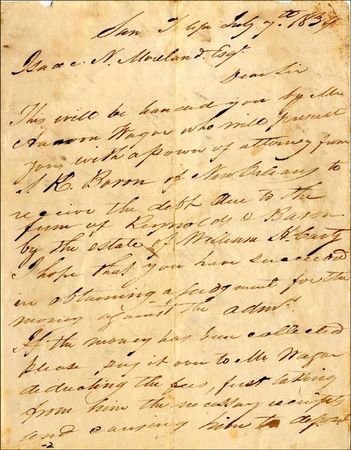 San Felipe July 7th 1834
Isaac N. Moreland Esqr
Dear Sir
This will be handed you by Mr
Aaron Wagor who will present
you with a power of attorney from
S K. Baron of New Orleans to
receive the debt due to the
firm of Reynolds & Baron
by the estate of William H. Carty
I hope that you have succeeded
in obtaining a judgment for the
money against the admr
If the money has been collected
please pay it over to Mr Wagor
deducting the fees, first taking
from him the necessary receipts
and causing him to deposit